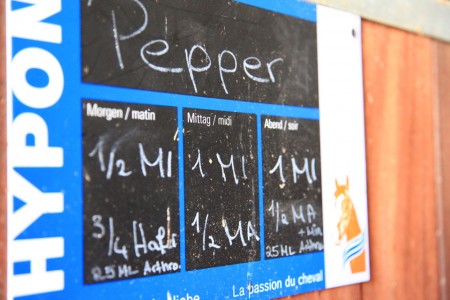 HYPON
Pepper
Morgen / matin
1/2 MI
3/4 Hafi
25 ML Arthro.
Mittag / midi
1 MI
1/2 MA
Abend / soir
1 MI
1/2 MA
+ Min
25 ML Arthro.
La passion du cheval